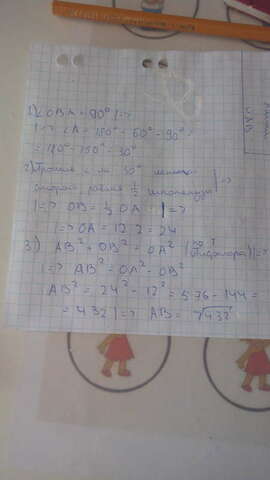 1) ∠OBA = 90° | =>
| => ∠A = 180° - 60° - 90° =
= 180° - 150° = 30°
2) Против 30°
равен 1/2 гипотенузы | =>
| => OB = 1/2 OA = | =>
| => OA = 12·2 = 24
3) AB² + OB² = OA² (по т. Пифагора) | =>
| => AB² = OA² - OB²
AB² = 24² - 12² = 576 - 144 =
= 432 | => AB = √432